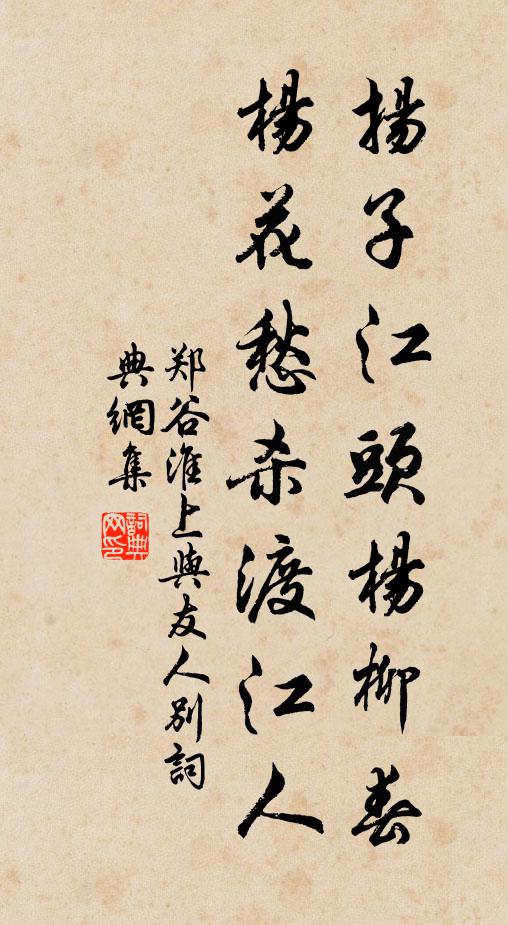 揚子江頭楊柳春
楊花愁杀渡江人
郑谷淮上與友人別詞
典網集
詞典
网印